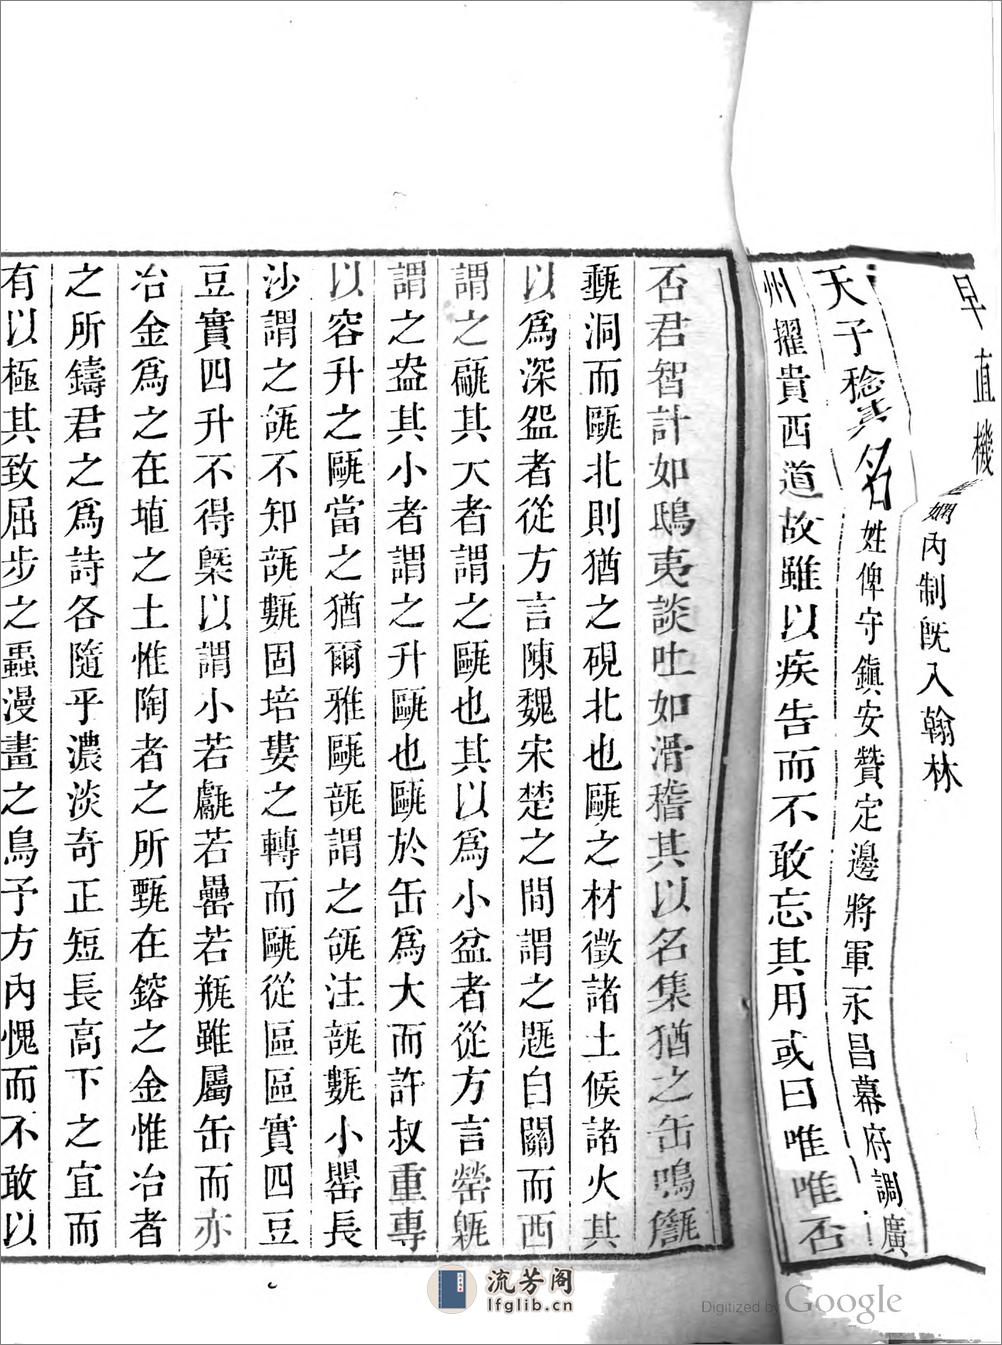 早直機
內制旣入翰林
天子稔其名姓俾守鎮安贊定邊將軍永昌幕府調廣
州擢貴西道故雖以疾告而不敢忘其用或曰唯唯否
否君智計如鴟夷談吐如滑稽其以名集猶之缶鳴
洞而甌北則猶之硯北也甌之材徵諸土候諸火其
以爲深盌者從方言陳魏宋楚之間謂之㼵自關而西
謂之其大者謂之甌也其以爲小盆者從方言罃甈
謂之盎其小者謂之升甌也甌於缶爲大而許叔重專
以容升之甌當之猶爾雅甌瓿謂之瓵注瓿甊小罌長
沙謂之瓵不知瓿甊固培塿之轉而甌從區區實四豆
豆實四升不得槩以謂小若甗若罍若瓶雖屬缶而亦
冶金爲之在埴之土惟陶者之所甄在鎔之金惟冶者
之所鑄君之爲詩各隨乎濃淡奇正短長高下之宜而
有以極其致屈步之蟲漫畫之鳥予方內愧而不敢以
流芳阁
lfglib.cn
Digitized by Google